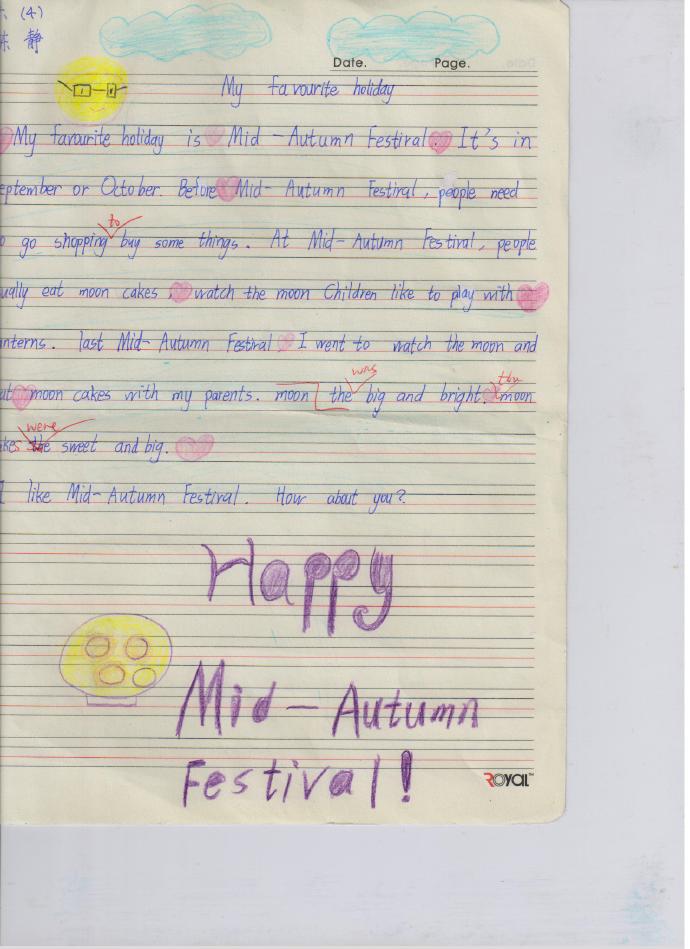 (4)
静
Date. Page.
My favourite holiday
My favourite holiday is Mid-Autumn Festival. It's in
eptember or October. Before Mid-Autumn Festival, people need
o go shopping to buy some things. At Mid-Autumn Festival, people
ually eat moon cakes watch the moon Children like to play with
nterns. last Mid-Autumn Festival I went to watch the moon and
at moon cakes with my parents. moon the was big and bright. the moon
kes the were sweet and big.
I like Mid-Autumn Festival. How about you?
Happy
Mid-Autumn
Festival!
ROYAL